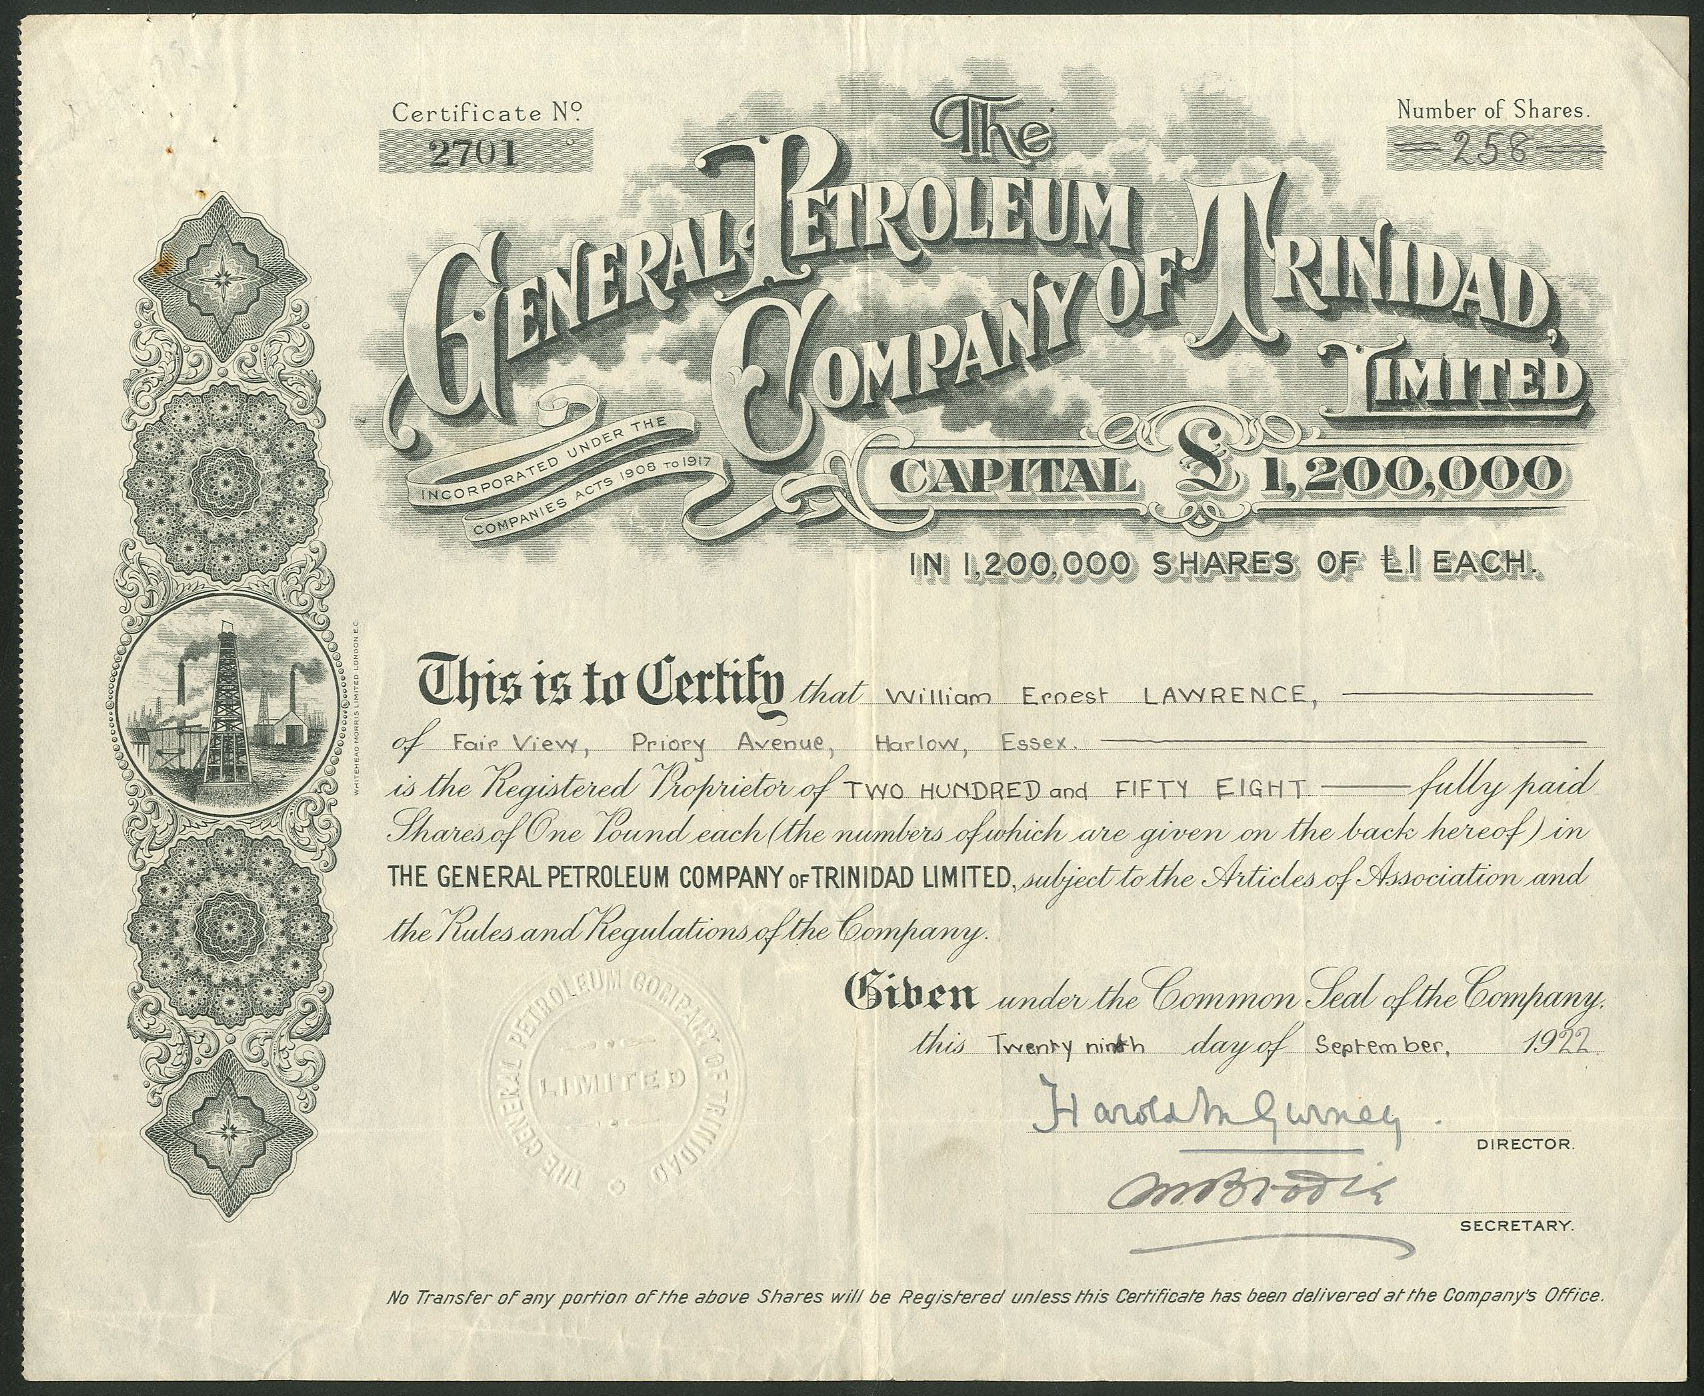 Certificate Nº
2701
Number of Shares.
258
The
GENERAL PETROLEUM
COMPANY OF TRINIDAD,
LIMITED
INCORPORATED UNDER THE
COMPANIES ACTS 1908 TO 1917
CAPITAL £1,200,000
IN 1,200,000 SHARES OF £1 EACH.
This is to Certify that William Ernest LAWRENCE,
of Fair View, Priory Avenue, Harlow, Essex.
is the Registered Proprietor of TWO HUNDRED and FIFTY EIGHT fully paid
Shares of One Pound each (the numbers of which are given on the back hereof) in
THE GENERAL PETROLEUM COMPANY OF TRINIDAD LIMITED, subject to the Articles of Association and
the Rules and Regulations of the Company.
Given under the Common Seal of the Company.
this Twenty ninth day of September, 1922
Harold M Gurney.
DIRECTOR.
M Brodie
SECRETARY.
THE GENERAL PETROLEUM COMPANY OF TRINIDAD
LIMITED
No Transfer of any portion of the above Shares will be Registered unless this Certificate has been delivered at the Company's Office.
WHITEHEAD MORRIS LIMITED LONDON.E.C.